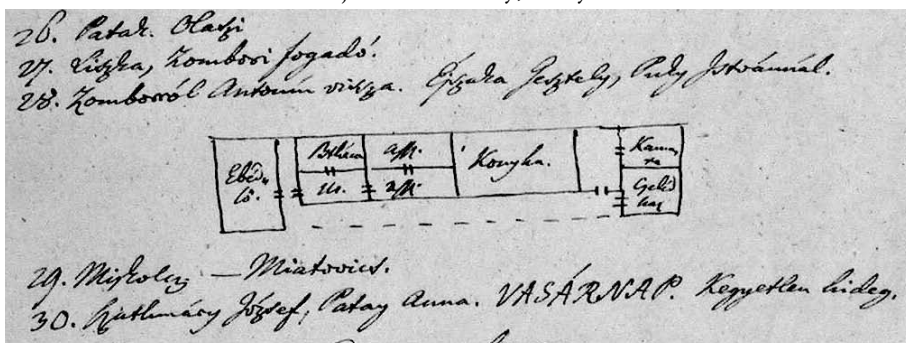 26. Patak. Olaszi
27. Liszka, Zombori fogadó.
28. Zomborról Antonin vissza. Éjszaka Gesztely, Puky Istvánnál.
Ebédlő.
Konyha.
Kamara
29. Miskolcz — Miatovics.
30. József, Patay Anna. VASÁRNAP. Kegyetlen hideg.